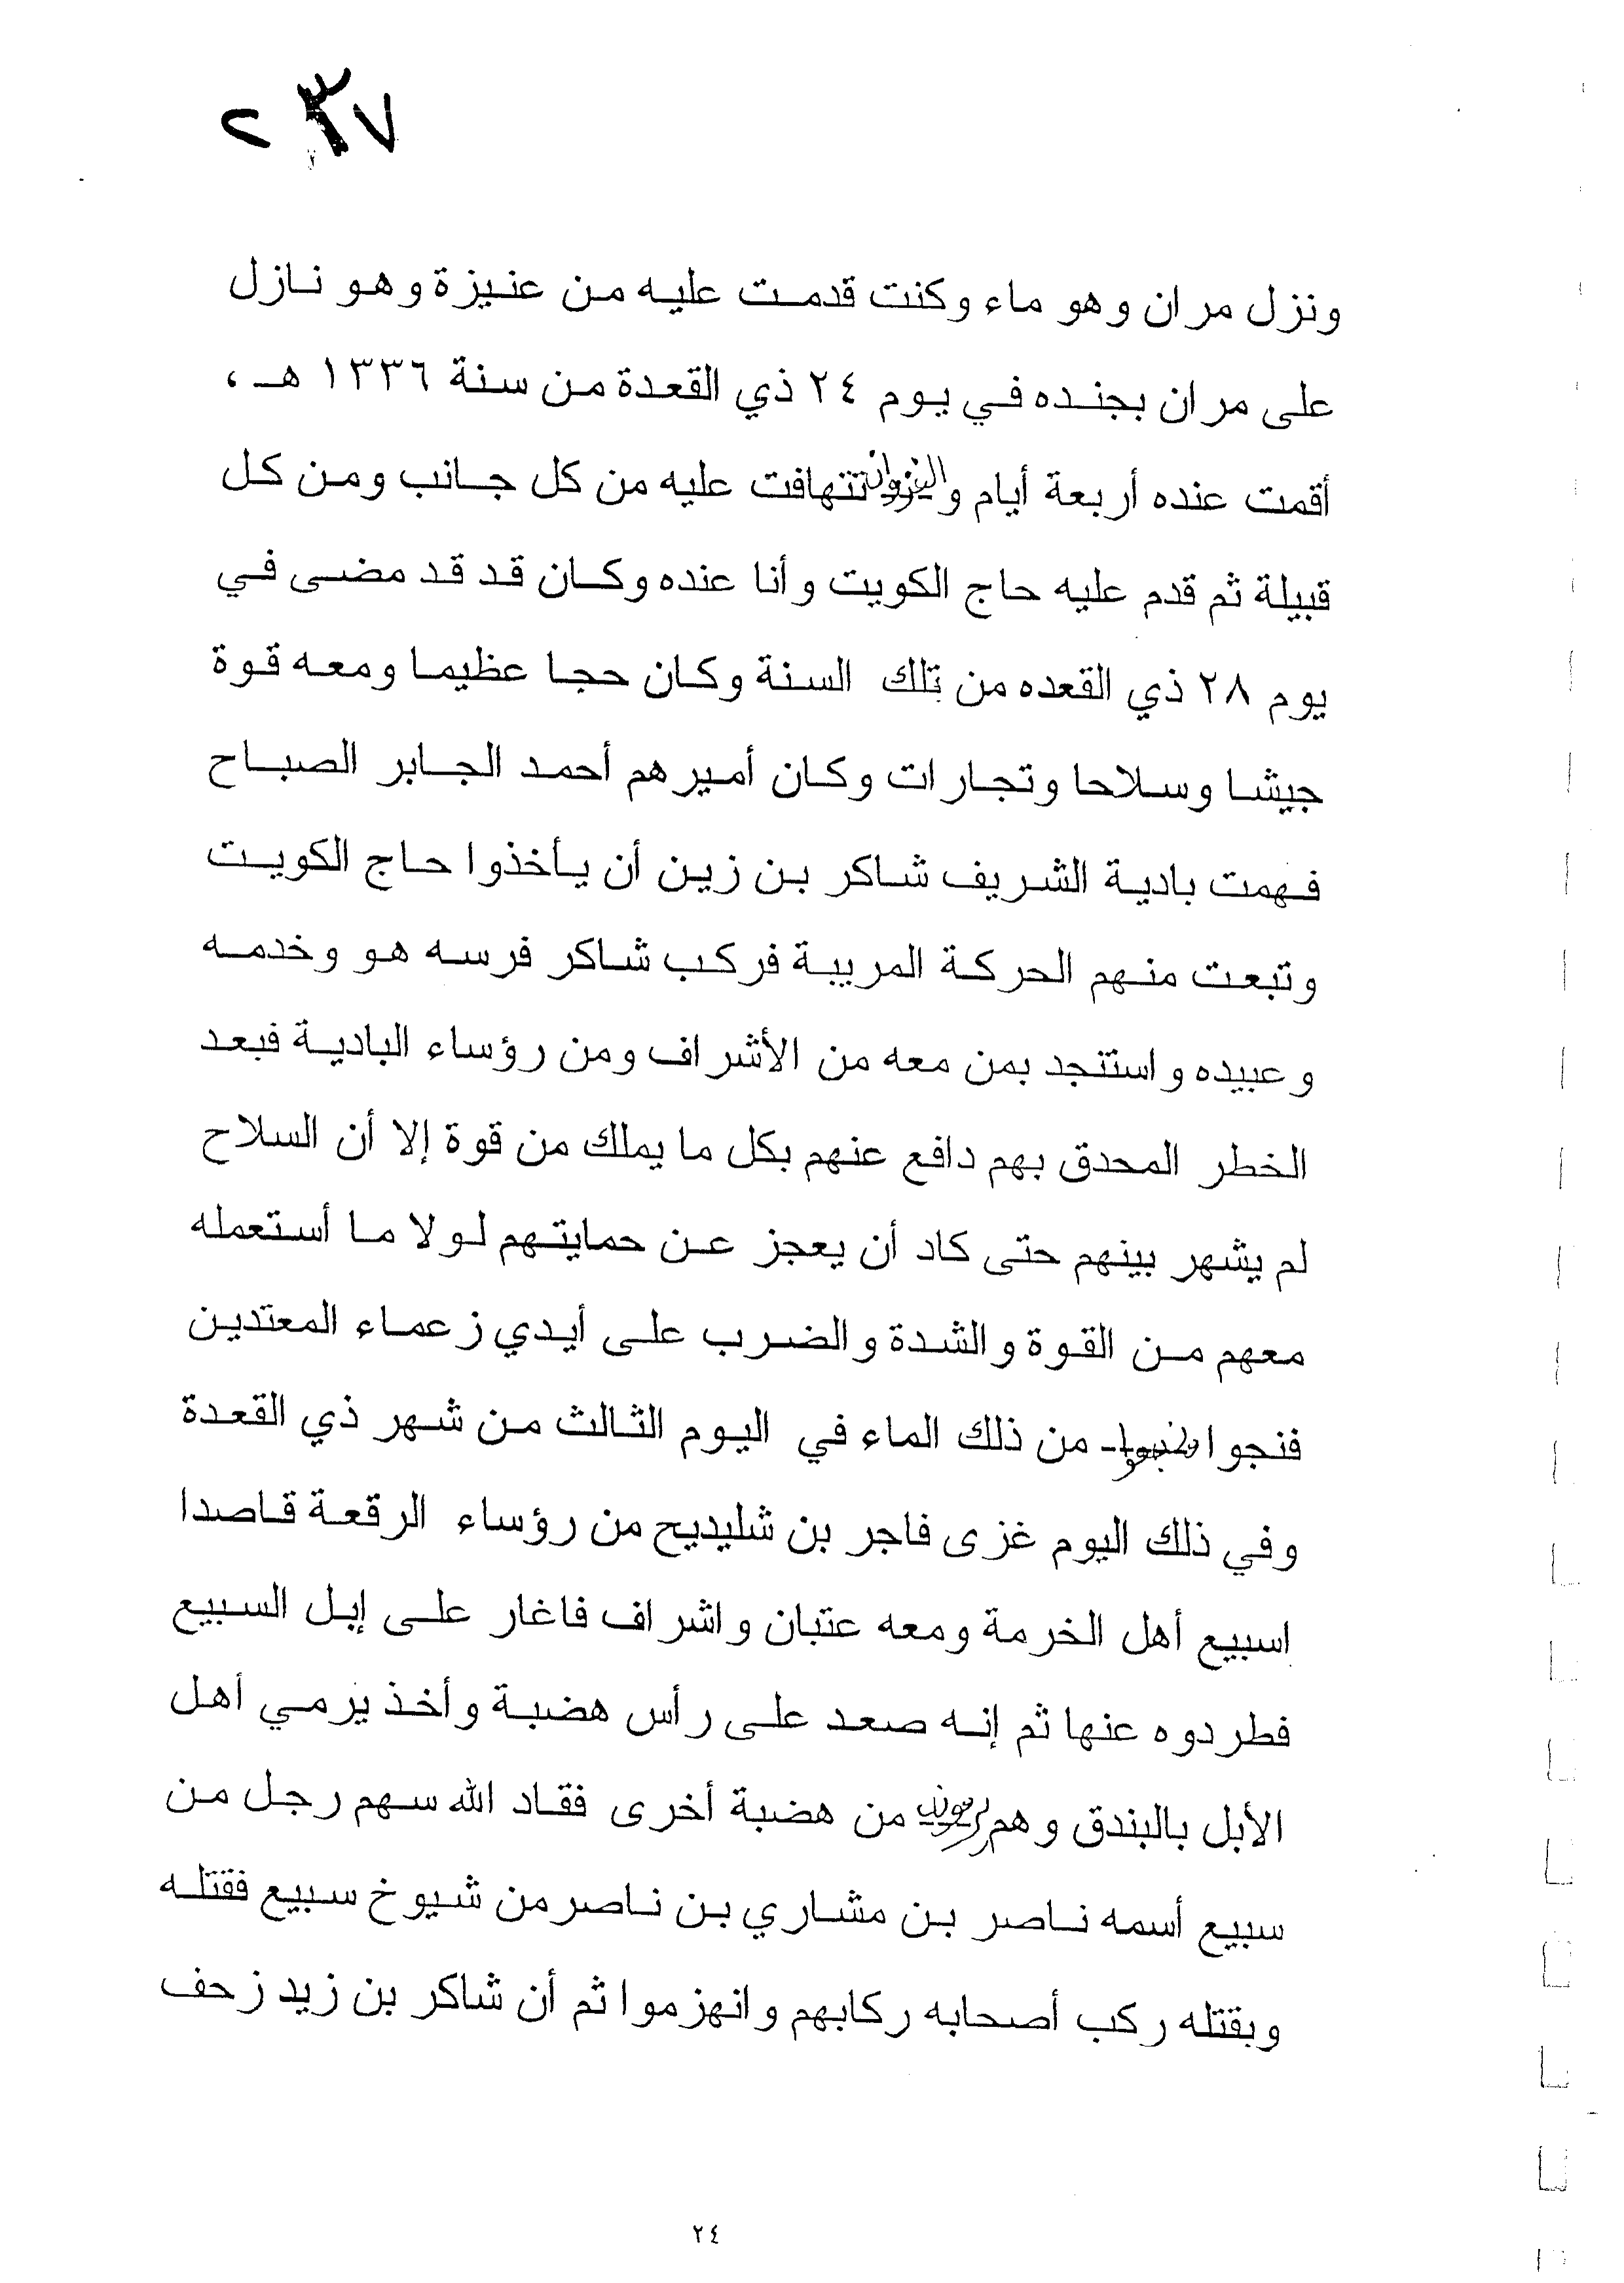 ٢٣٧
ونزل مران وهو ماء وكنت قدمت عليه من عنيزة وهو نازل
على مران بجنده في يوم ٢٤ ذي القعدة من سنة ١٣٣٦ هـ ،
أقمت عنده أربعة أيام والغزوان تتهافت عليه من كل جانب ومن كل
قبيلة ثم قدم عليه حاج الكويت وأنا عنده وكان قد قد مضى في
يوم ٢٨ ذي القعده من تلك السنة وكان حجا عظيما ومعه قوة
جيشا وسلاحا وتجارات وكان أميرهم أحمد الجابر الصباح
فهمت بادية الشريف شاكر بن زين أن يأخذوا حاج الكويت
وتبعت منهم الحركة المريبة فركب شاكر فرسه هو وخدمه
وعبيده واستنجد بمن معه من الأشراف ومن رؤساء البادية فبعد
الخطر المحدق بهم دافع عنهم بكل ما يملك من قوة إلا أن السلاح
لم يشهر بينهم حتى كاد أن يعجز عن حمايتهم لولا ما أستعمله
معهم من القوة والشدة والضرب على أيدي زعماء المعتدين
فنجوا من ذلك الماء في اليوم الثالث من شهر ذي القعدة
وفي ذلك اليوم غزى فاجر بن شليديح من رؤساء الرقعة قاصدا
اسبيع أهل الخرمة ومعه عتبان واشراف فاغار على إبل السبيع
فطردوه عنها ثم إنه صعد على رأس هضبة وأخذ يرمي أهل
الأبل بالبندق وهم يرمونه من هضبة أخرى فقاد الله سهم رجل من
سبيع أسمه ناصر بن مشاري بن ناصر من شيوخ سبيع فقتله
وبقتله ركب أصحابه ركابهم وانهزموا ثم أن شاكر بن زيد زحف
٢٤